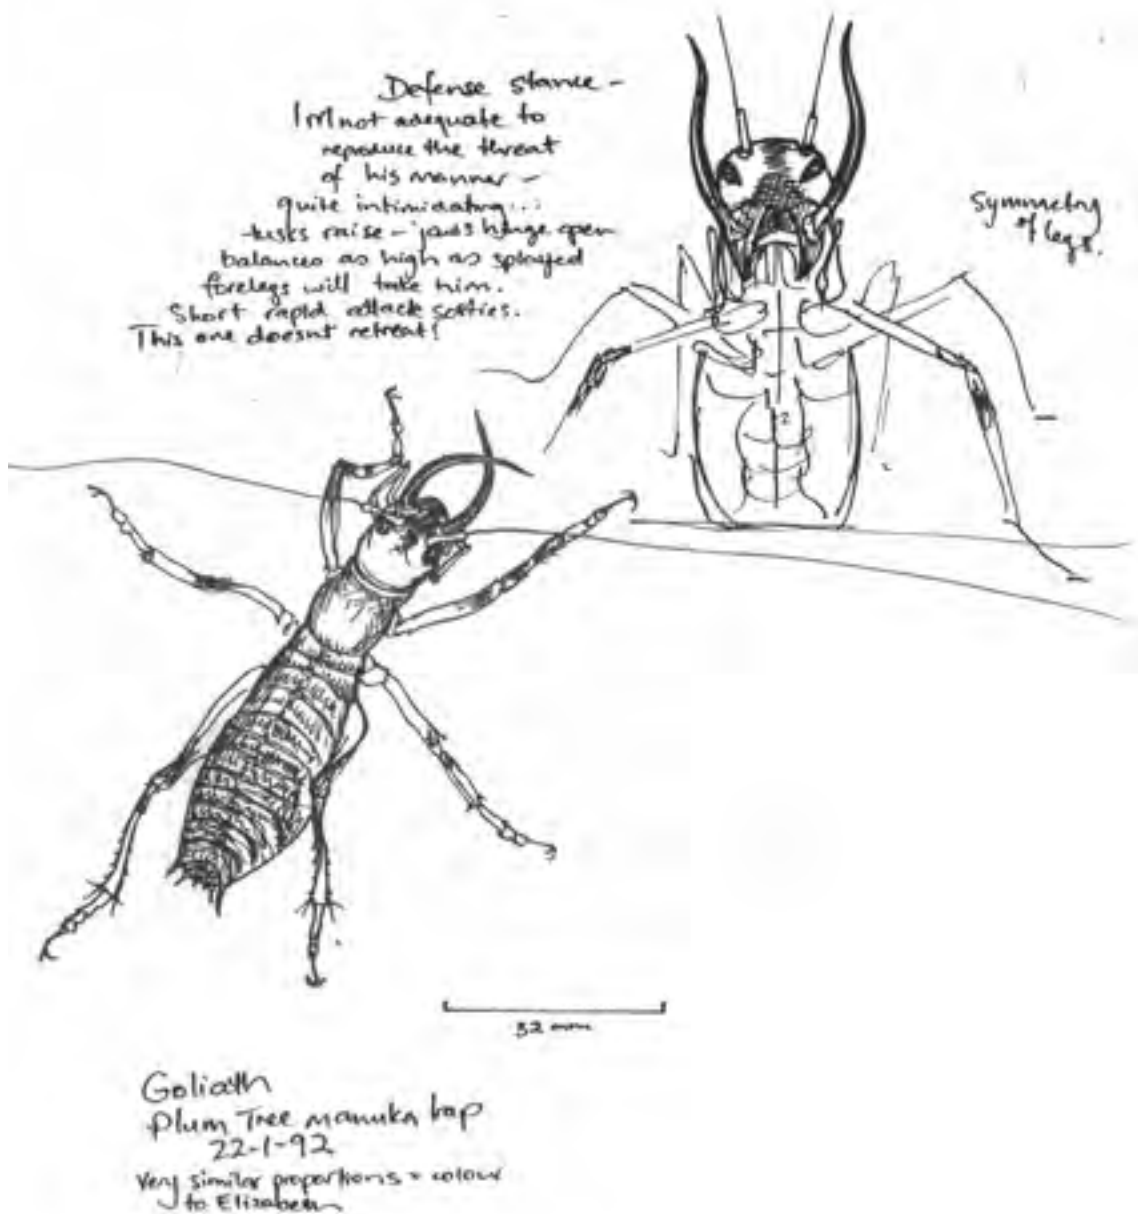 Defense stance –
I'm not adequate to
reproduce the threat
of his manner –
quite intimidating...
tusks raise – jaws hinge open
balances as high as splayed
forelegs will take him.
Short rapid attack sorties.
This one doesnt retreat!
Symmetry
of legs.
2
32 mm
Goliath
Plum Tree manuka trap
22-1-92
Very similar proportions + colour
to Elizabeth